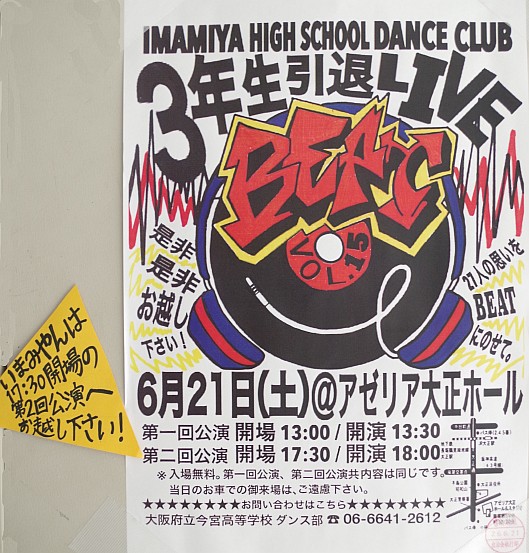 IMAMIYA HIGH SCHOOL DANCE CLUB
3年生引退LIVE
BEAT
VOL.15
是非
是非
お越し
下さい!
27人の思いを
BEAT
にのせて。
6月21日(土)@アゼリア大正ホール
第一回公演 開場 13:00 / 開演 13:30
第二回公演 開場 17:30 / 開演 18:00
※入場無料。第一回公演、第二回公演共内容は同じです。
当日のお車での御来場は、ご遠慮下さい。
★★★★★★★お問い合わせはこちら★★★★★★★★
大阪府立今宮高等学校 ダンス部 ☎ 06-6641-2612
いまみやんは
17:30開場の
第2回公演へ
お越し下さい!